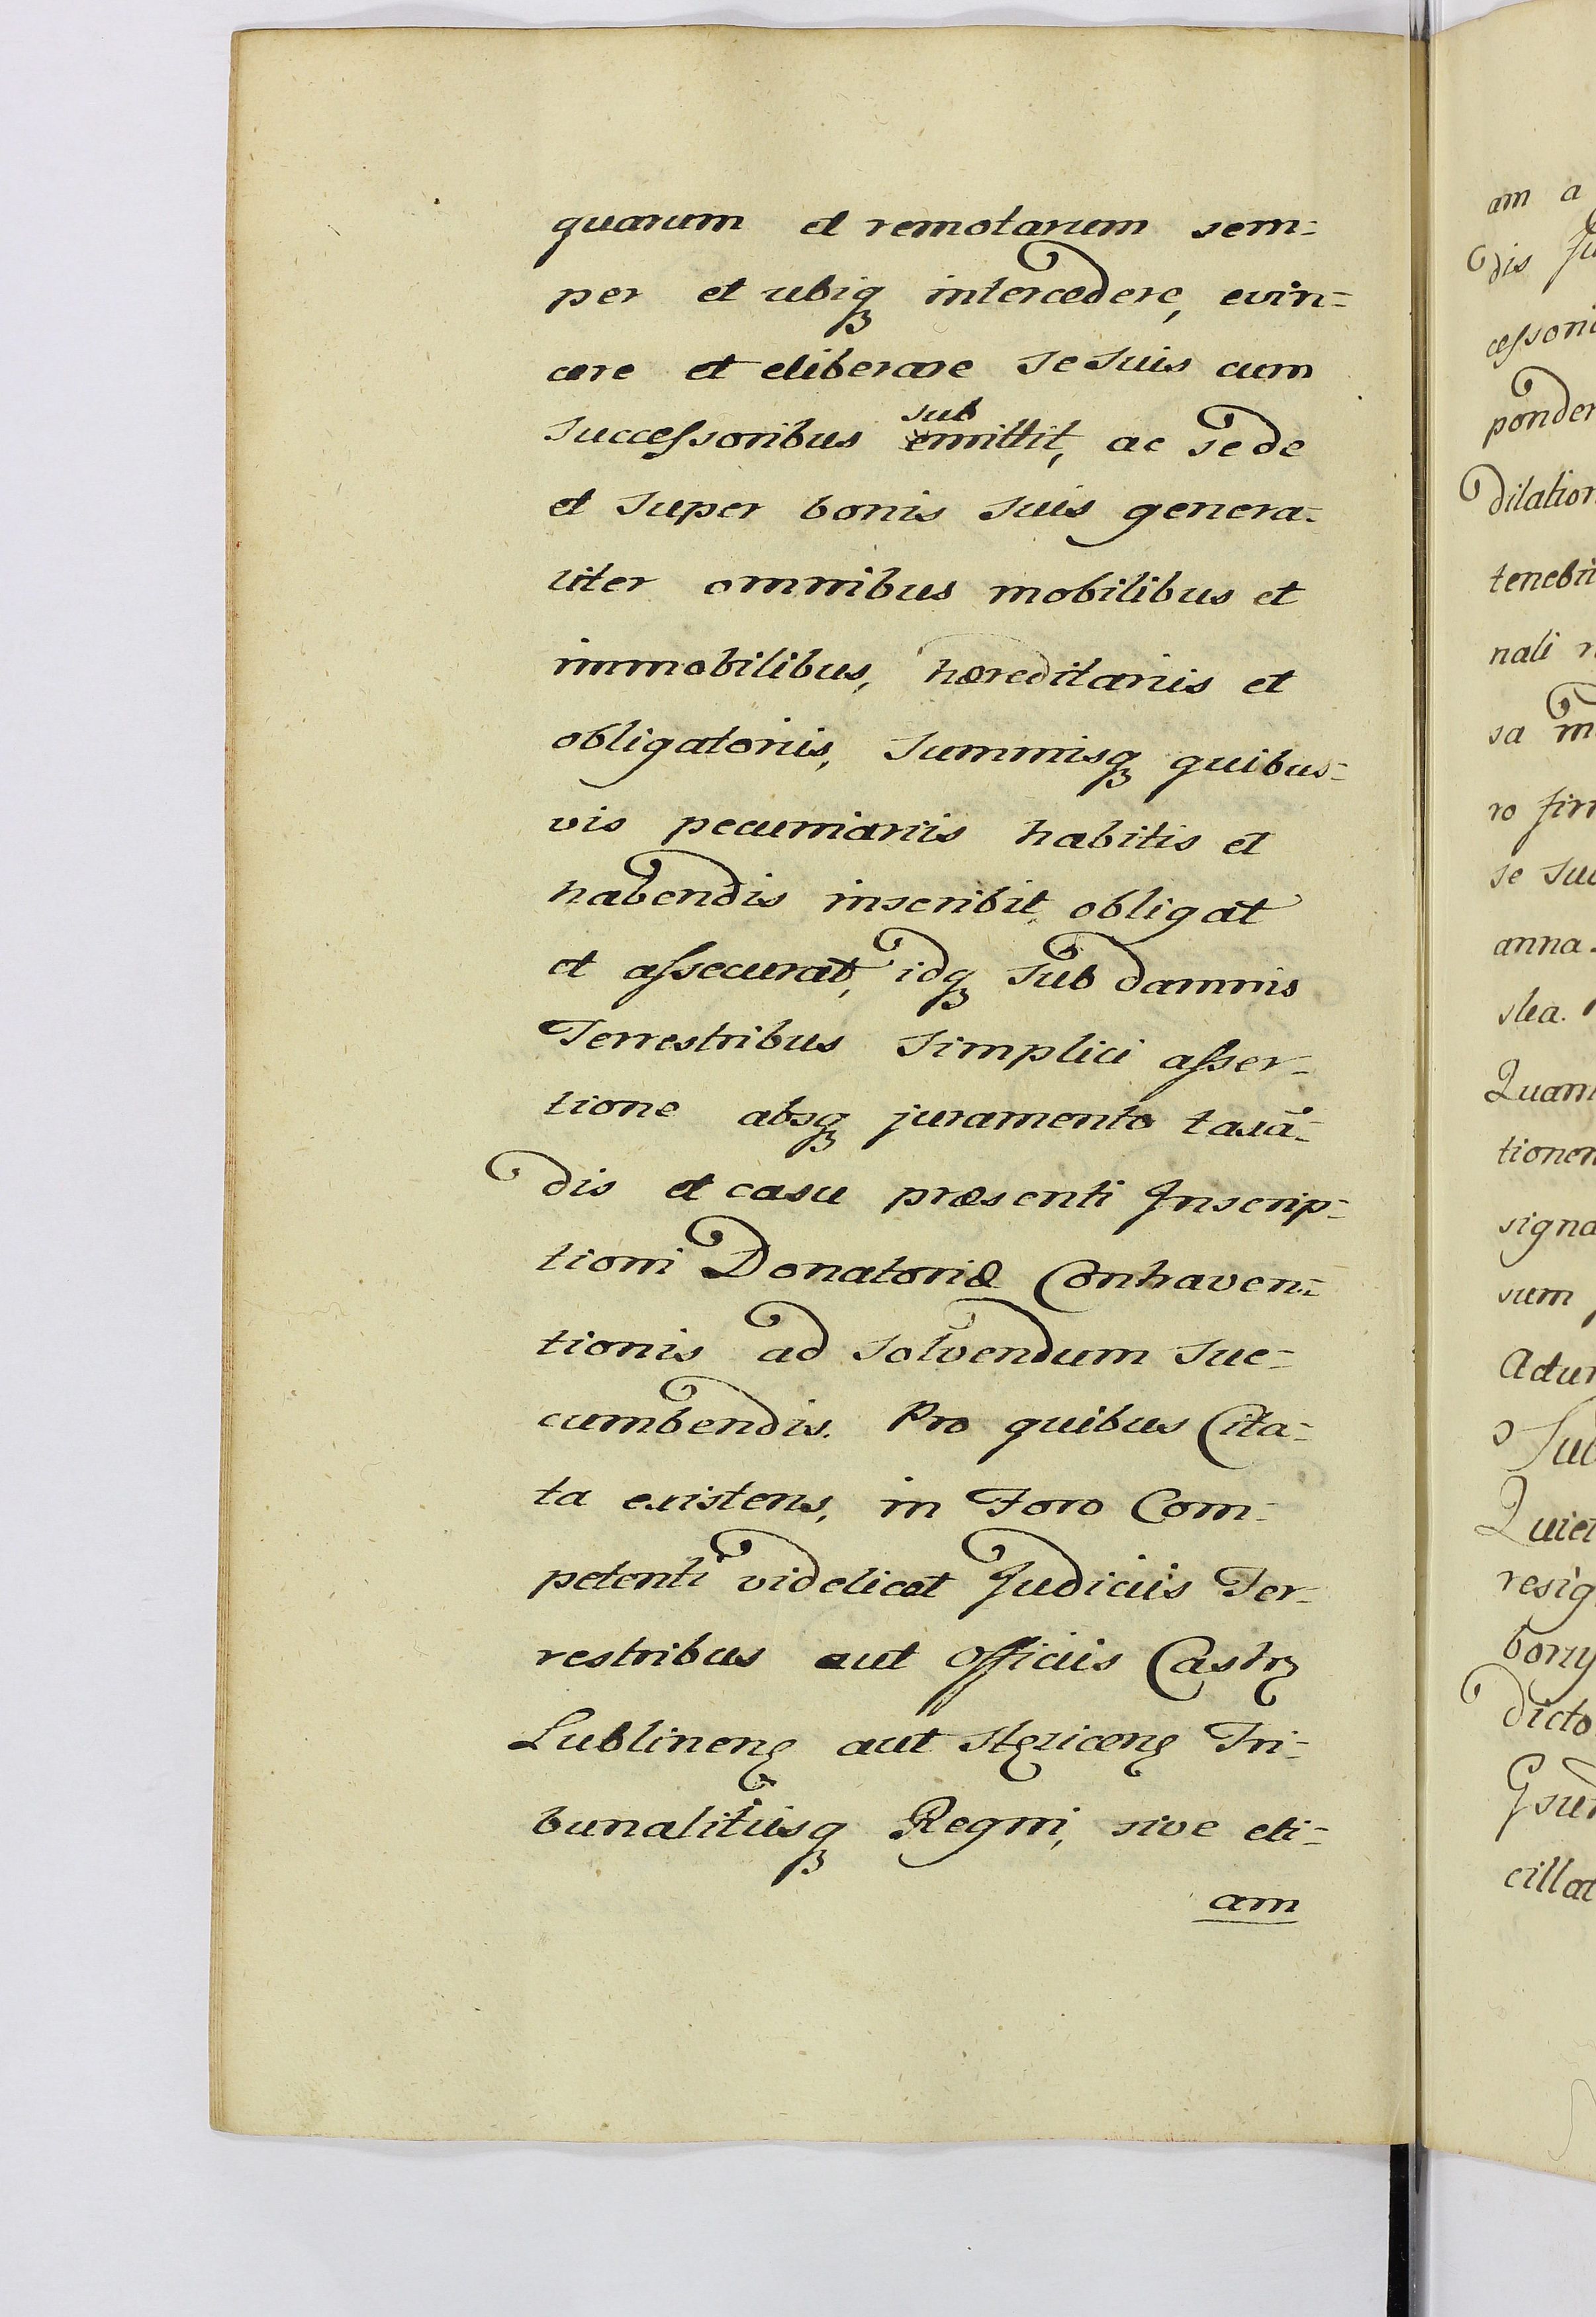 quarum et remotarum sem=
per et ubiqꝫ intercedere, evin=
cere et eliberare se suis cum
successoribus submittit, ac se de
et super bonis suis genera=
liter omnibus mobilibus et
immobilibus, hæreditariis et
obligatoriis, summisqꝫ quibus=
vis pecuniariis habitis et
habendis inscribit, obligat
et assecurat, idqꝫ sub damnis
Terrestribus simplici asser=
tione absqꝫ juramento taxā=
dis et casu præsenti Inscrip=
tioni Donatoriæ Contraven=
tionis ad solvendum suc=
cumbendis. Pro quibus Cita=
ta existens, in Foro Com=
petenti videlicet Judiciis Ter=
restribus aut officiis Castrꝫ
Lublinenꝫ aut Stęzicenꝫ Tri=
bunalitiisqꝫ Regni, sive eti=
am
am a
dis
cessori
ponder
dilation
tenebit
nali
sa
ro
se
anna
Quam
tionem
signa
sum
Quiet
resig
dicto
cillat